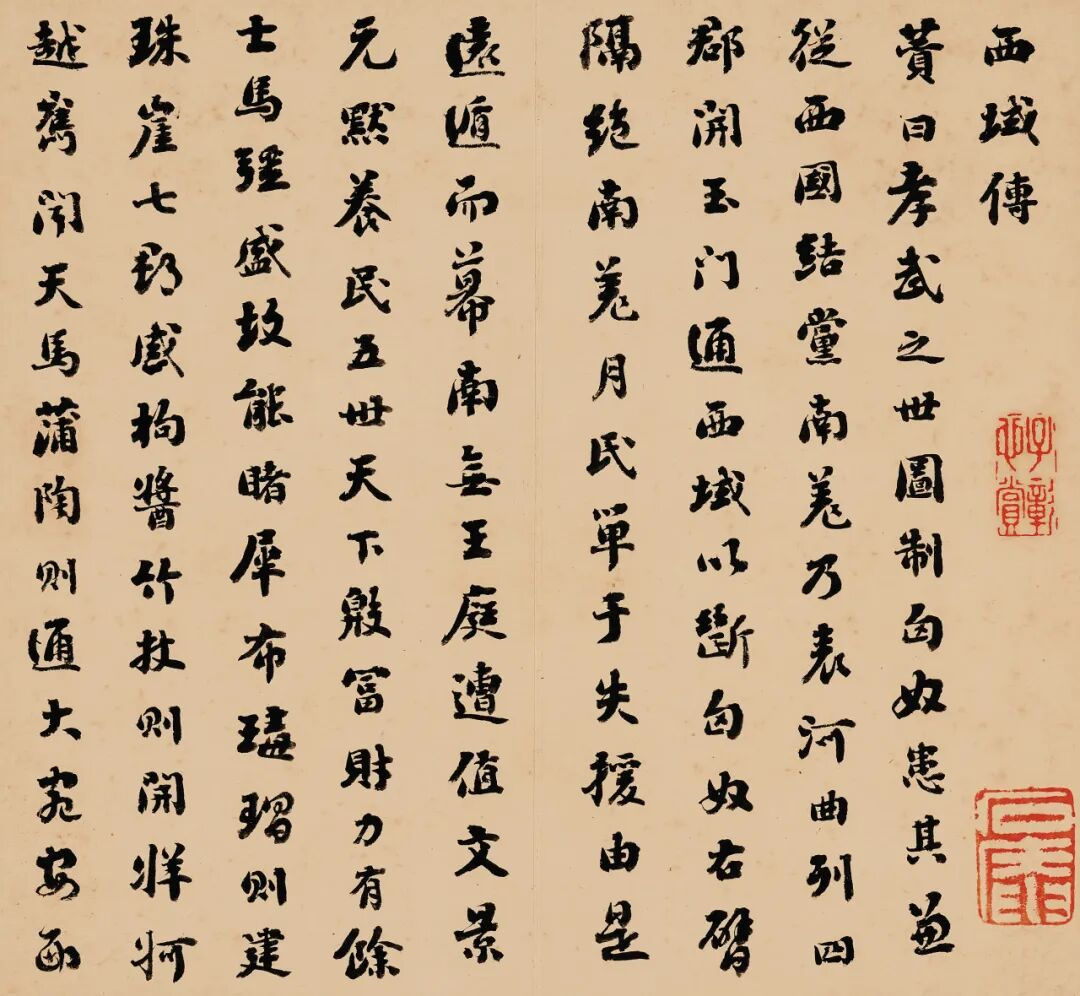 西域傳
賛曰孝武之世圖制匈奴患其兼
從西國結黨南羌乃表河曲列四
郡開玉门通西域以斷匈奴右臂
隔絶南羌月民單于失援由是
遠遁而幕南無王庭遭值文景
元默養民五世天下殷富財力有餘
士馬彊盛故能睹犀布瑇瑁則建
珠崖七郡感枸醬竹杖則開牂牁
越嶲聞天馬蒲陶則通大宛安西